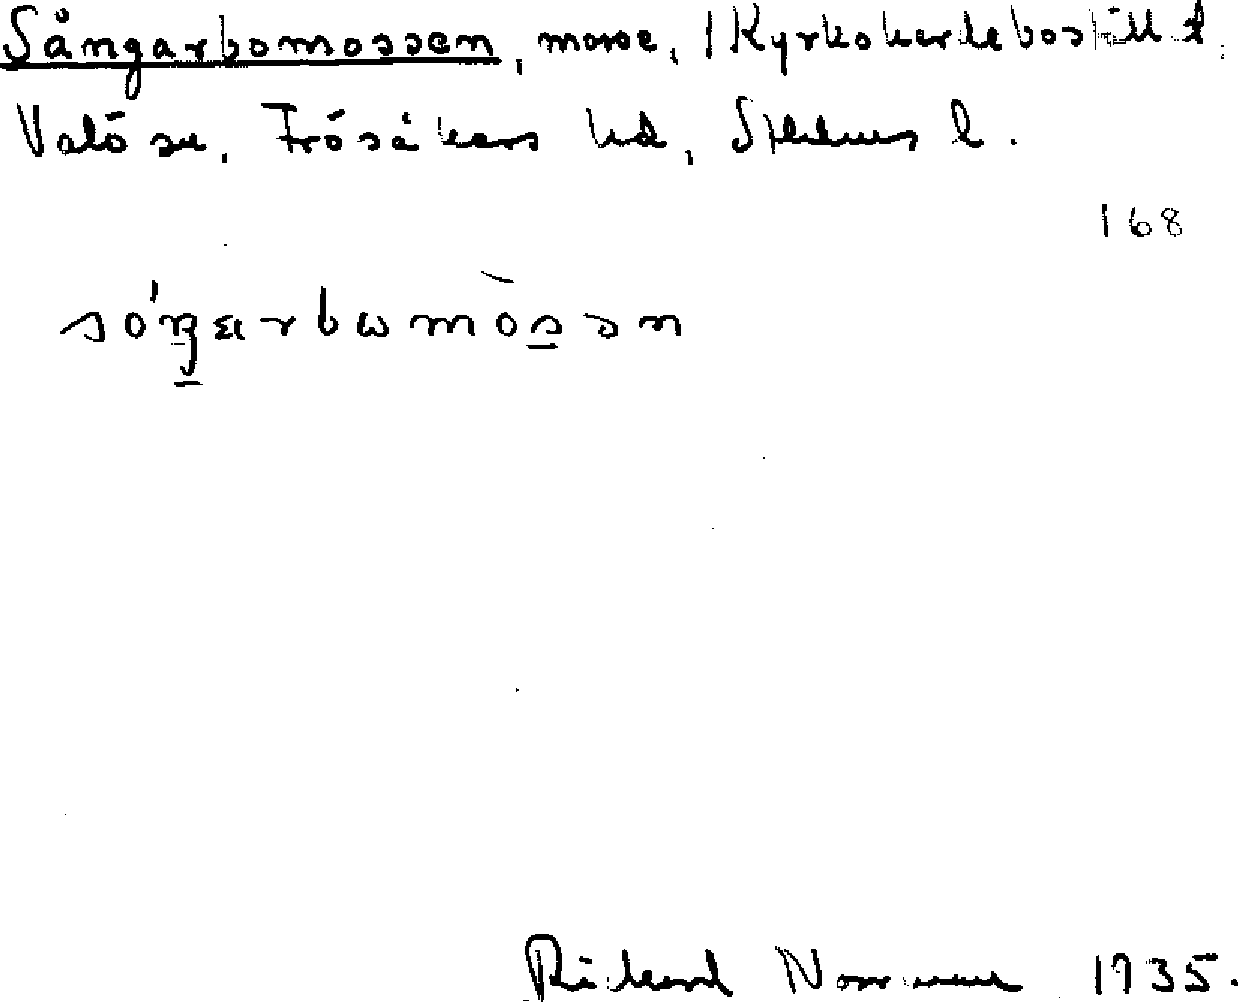 Sångarbomossen, mosse, 1 Kyrkoherdebostället,
Valö sn, Frösåkers hd, Sthlms l.
168
só̀ŋarbωmòsən
Rickard Norrman 1935.